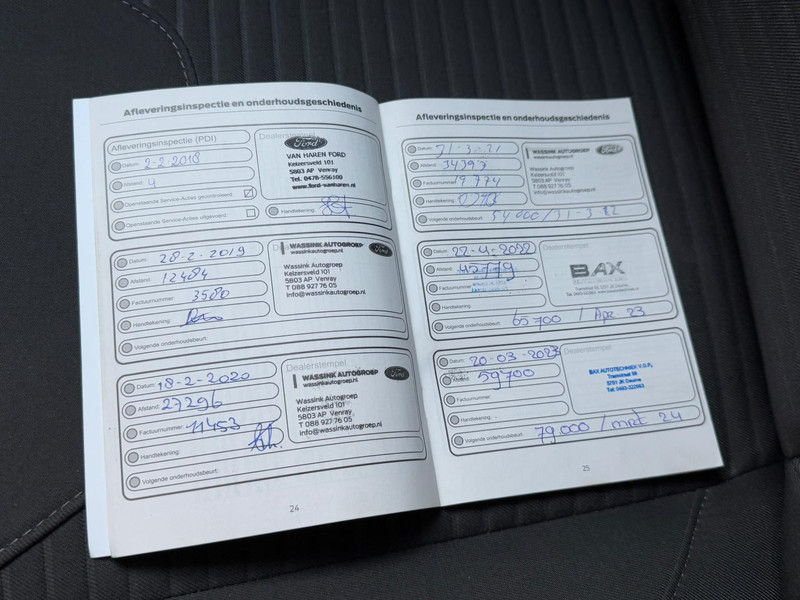 Afleveringsinspectie en onderhoudsgeschiedenis
Afleveringsinspectie (PDI)
Datum: 2-2-2018
Afstand: 4
Openstaande Service-Acties gecontroleerd
Openstaande Service-Acties uitgevoerd
Dealerstempel
Ford
VAN HAREN FORD
Keizersveld 101
5803 AP Venray
Tel. 0478-556100
www.ford-vanharen.nl
Handtekening:
Datum: 28-2-2019
Afstand: 12484
Factuurnummer: 3580
Handtekening:
Volgende onderhoudsbeurt:
WASSINK AUTOGROEP
wassinkautogroep.nl
Ford
Wassink Autogroep
Keizersveld 101
5803 AP Venray
T 088 927 76 05
info@wassinkautogroep.nl
Datum: 18-2-2020
Afstand: 27296
Factuurnummer: 11453
Handtekening:
Volgende onderhoudsbeurt:
Dealerstempel
WASSINK AUTOGROEP
wassinkautogroep.nl
Ford
Wassink Autogroep
Keizersveld 101
5803 AP Venray
T 088 927 76 05
info@wassinkautogroep.nl
24
Afleveringsinspectie en onderhoudsgeschiedenis
Datum: 31-3-21
Afstand:
Factuurnummer: 19774
Handtekening:
Volgende onderhoudsbeurt: 54000/31-3
WASSINK AUTOGROEP
wassinkautogroep.nl
Ford
Wassink Autogroep
Keizersveld 101
5803 AP Venray
T 088 927 76 05
info@wassinkautogroep.nl
Datum: 22-4-2022
Afstand: 42779
Factuurnummer:
Handtekening:
Volgende onderhoudsbeurt: 65700 / Apr 23
Dealerstempel
BAX
Datum: 20-03-2023
Afstand: 59700
Factuurnummer:
Handtekening:
Volgende onderhoudsbeurt: 79000 / mrt 24
Dealerstempel
BAX AUTOTECHNIEK V.O.F.
5751 JK Deurne
Tel: 0493-322663
25